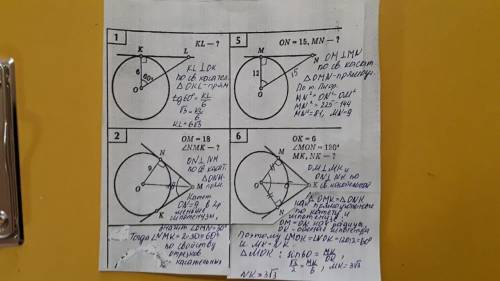 1
KL — ?
K
L
6
60°
O
KL ⊥ OK
по св. касател.
△ OKL - прям.
tg 60° = KL/6
√3 = KL/6
KL = 6√3
5
ON = 15, MN — ?
M
N
12
15
O
OM ⊥ MN
по св. касат.
△ OMN - прямоуг.
По т. Пиф.
MN² = ON² - OM²
MN² = 225 - 144
MN² = 81, MN = 9
2
OM = 18
∠NMK — ?
N
9
O
M
K
ON ⊥ NM
по св. касат.
△ ONM -
прям.
Катет
ON = 9 в 2 р
меньше
гипотенузы,
значит ∠OMN = 30°
Тогда ∠NMK = 2·30 = 60°
по свойству
отрезков
касательных
6
OK = 6
∠MON = 120°
MK, NK — ?
M
O
K
N
OM ⊥ MK и
ON ⊥ NK по
св. касательной
△OMK = △ONK
как прямоугольные
по катету и
гипотенузе
OM = ON как радиус,
OK - общая гипотенуза
Поэтому ∠MOK = ∠NOK = 120:2 = 60°
и MK = NK.
△MOK: sin 60 = MK/OK,
√3/2 = MK/6, MK = 3√3
NK = 3√3